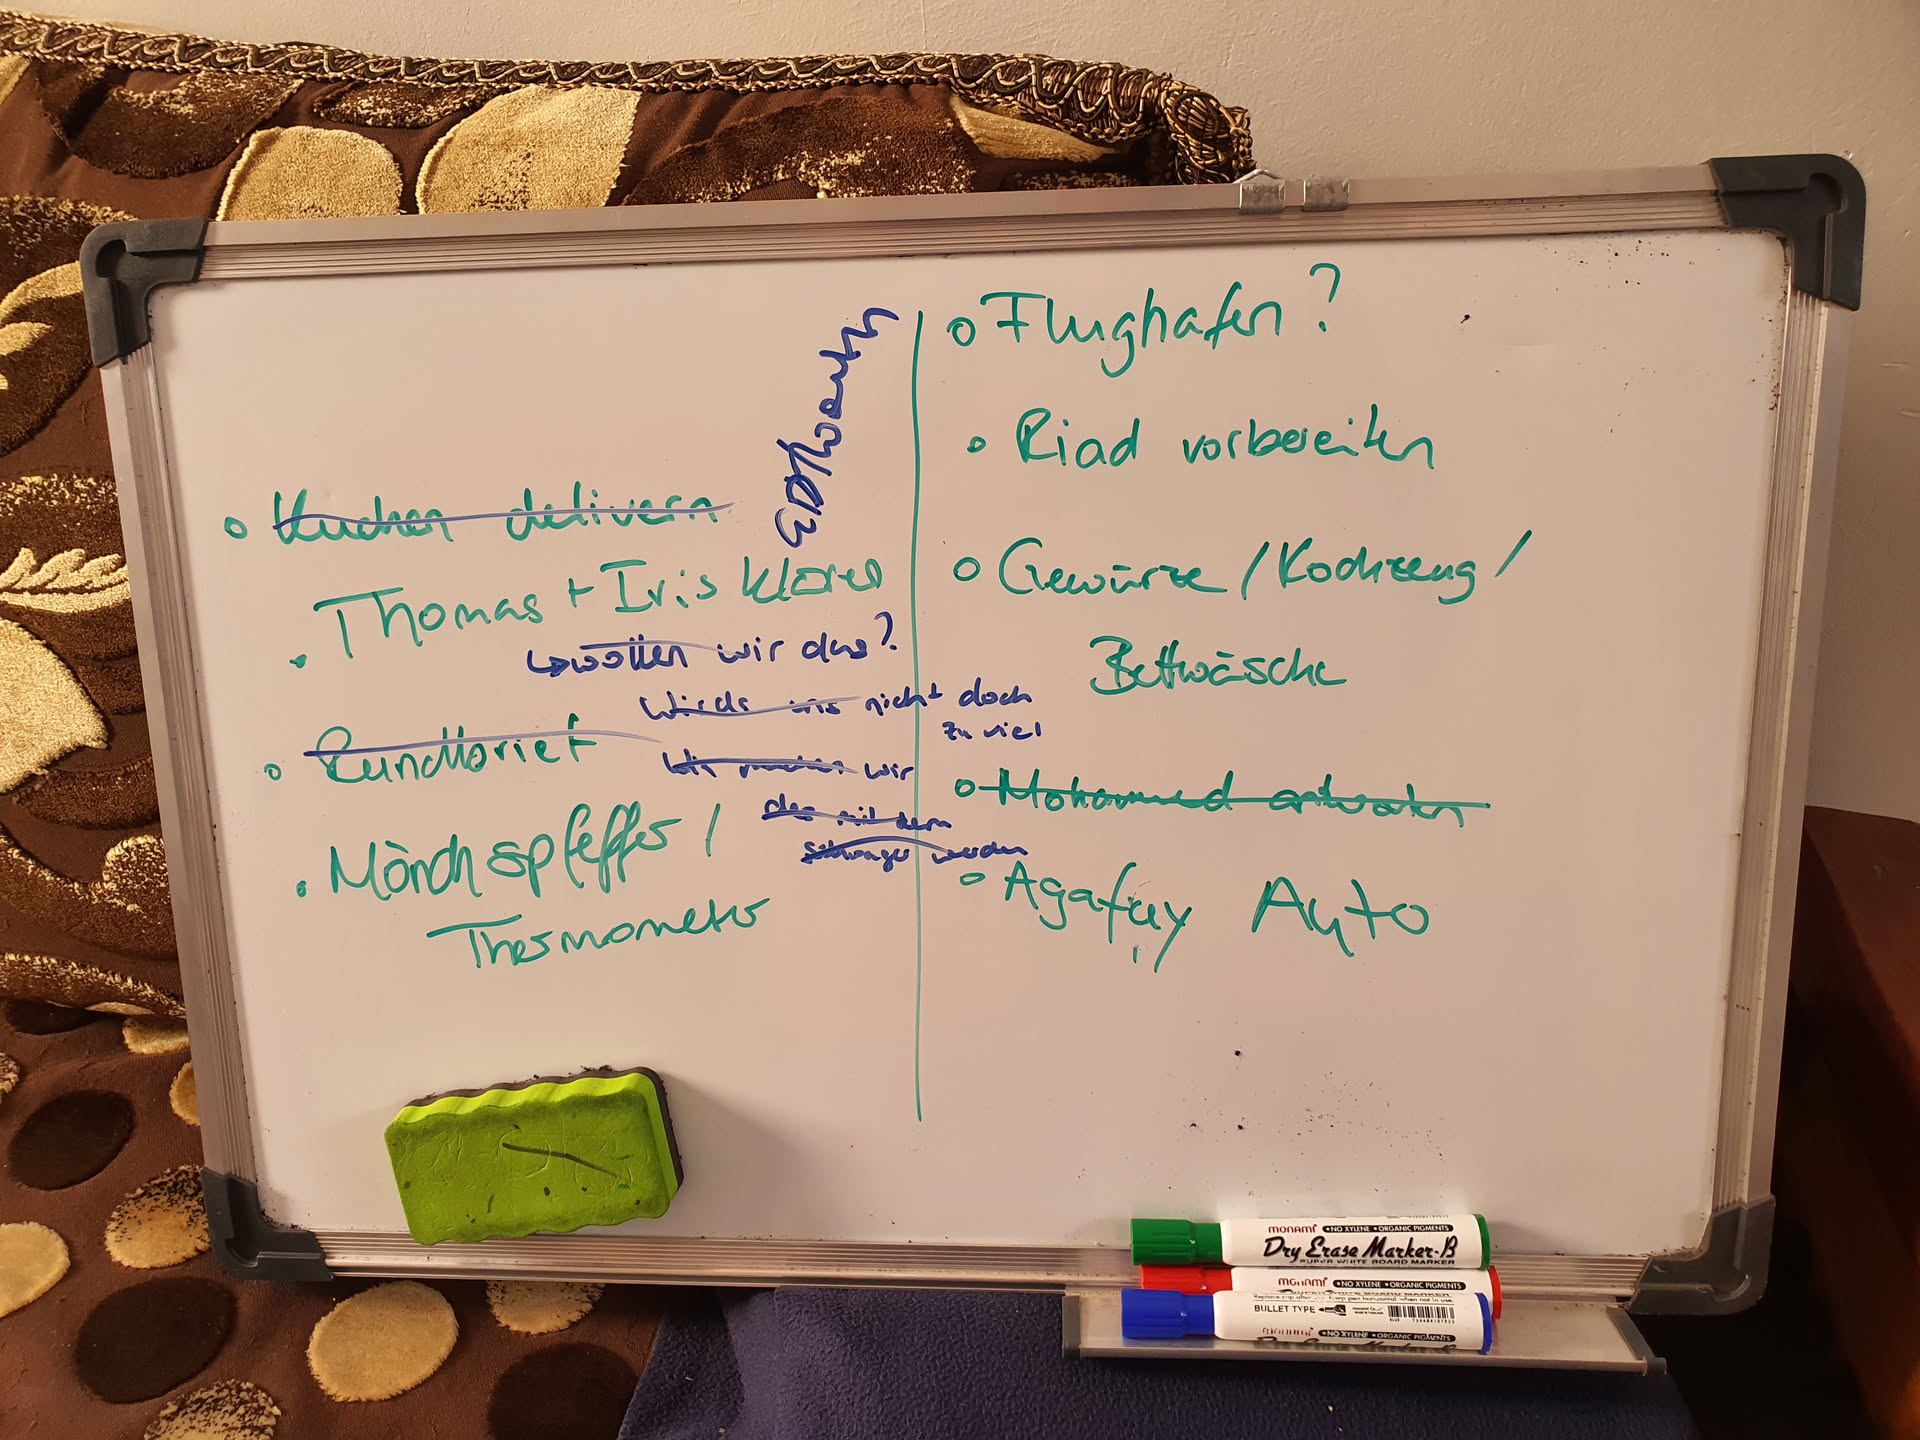 Kuchen delivern
Thomas + Iris klären
wollen wir das?
Wirds uns nicht doch
zu viel
Rundbrief
Wie machen wir
das mit dem
Schwanger werden
Mönchspfeffer /
Thermometer
Flughafen?
Riad vorbereiten
Gewürze / Kochzeug /
Bettwäsche
Mohammed antworten
Agafay Auto
monami • NO XYLENE • ORGANIC PIGMENTS
Dry Erase Marker-B
SUPER WHITE BOARD MARKER
monami • NO XYLENE • ORGANIC PIGMENTS
BULLET TYPE
monami • NO XYLENE • ORGANIC PIGMENTS